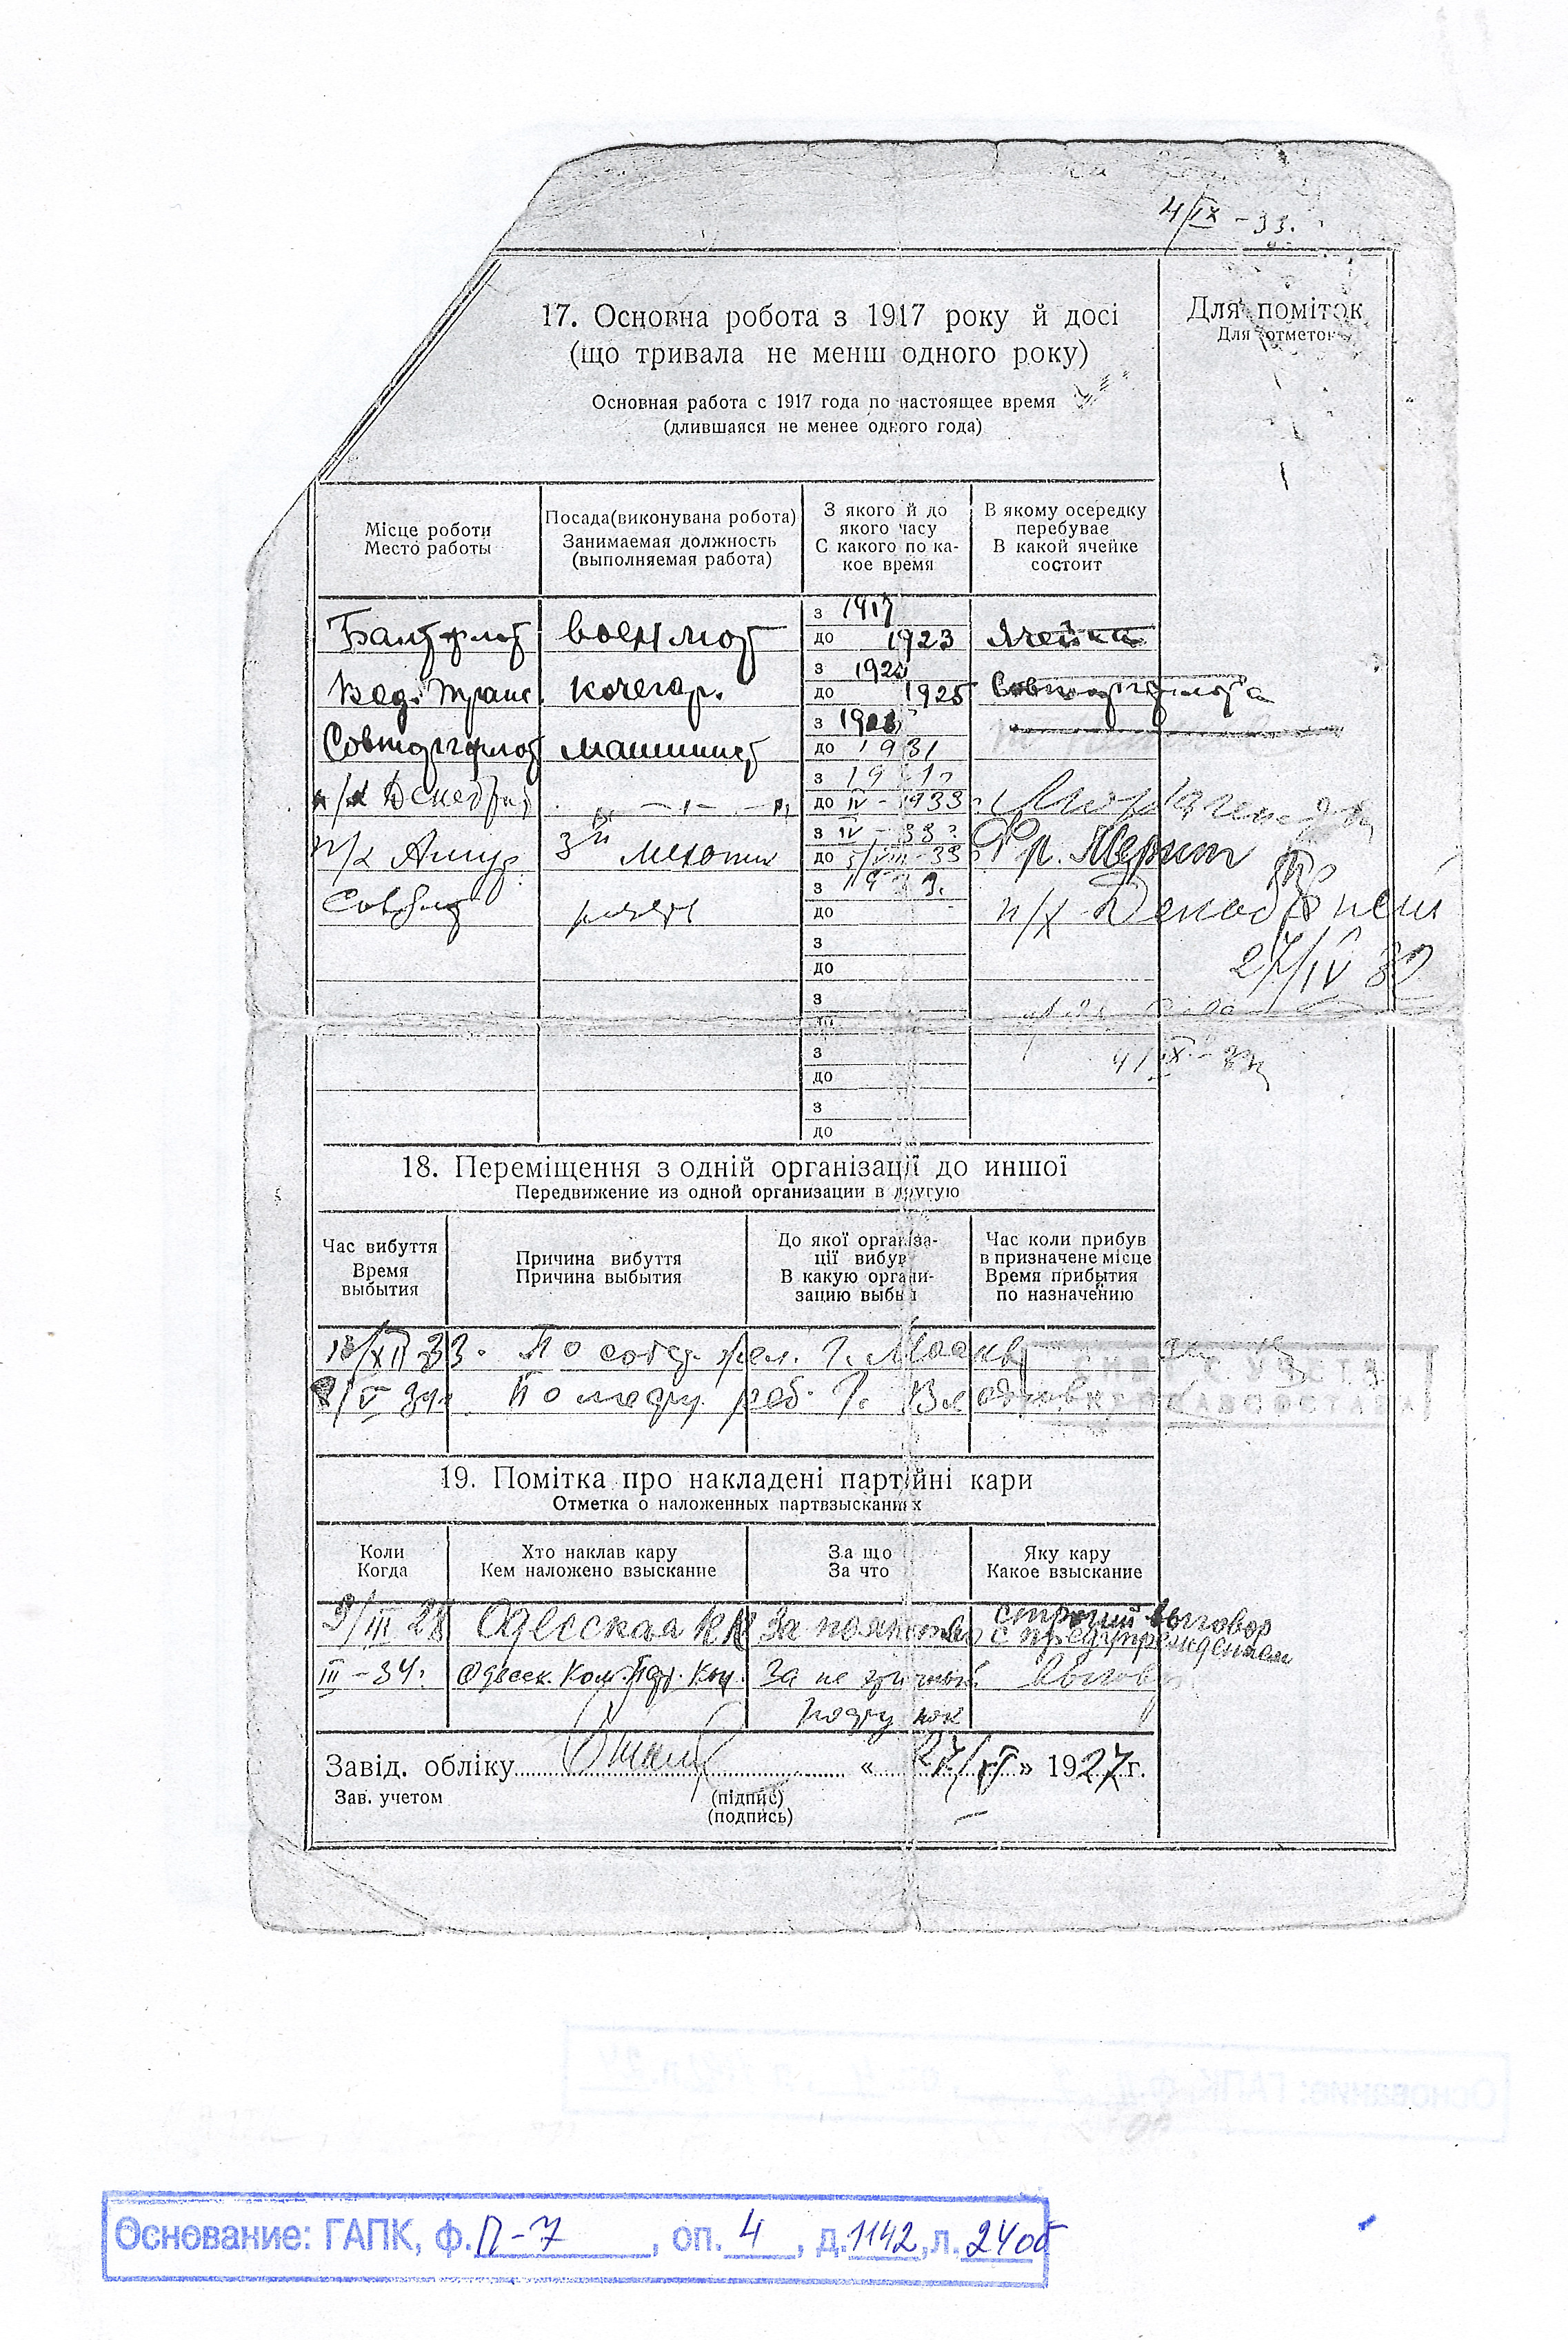 4/IX – 33.
17. Основна робота з 1917 року й досі
(що тривала не менш одного року)
Основная работа с 1917 года по настоящее время
(длившаяся не менее одного года)
Для поміток
Для отметок
Місце роботи
Место работы
Посада (виконувана робота)
Занимаемая должность
(выполняемая работа)
З якого й до
якого часу
С какого по ка-
кое время
В якому осередку
перебувае
В какой ячейке
состоит
Балтфлот военмот з 1917
до 1923 Ячейка
Вод. транс. кочегар. з
до 1925 Совторгфлота
Совторгфлот машинист з
до 1931
п/х Декабрист – " – з
до IV – 1933
п/х Амур 3й механик з IV – 33
до 5/VIII – 33 Фр. Меринг
з
до
п/х Декабрист
з
до
27/IV 32
з
до
4/IX – 33
з
до
з
до
18. Переміщення з одній організації до иншої
Передвижение из одной организации в другую
Час вибуття
Время
выбытия
Причина вибуття
Причина выбытия
До якої організа-
ції вибув
В какую органи-
зацию выбыл
Час коли прибув
в призначене місце
Время прибытия
по назначению
/XII 33. По собст. жел. Г. Москва
/V 34 По  раб. Г. Владивов
19. Помітка про накладені партійні кари
Отметка о наложенных партвзысканиях
Коли
Когда
Хто наклав кару
Кем наложено взыскание
За що
За что
Яку кару
Какое взыскание
9/III 28 Одесская КК За пьянство строгий выговор
с предупреждением
III – 34. Одесск. Ком. Парт. Кон. За не выговор
Завід. обліку « 27/VI » 1927 г.
Зав. учетом
(підпис)
(подпись)
Основание: ГАПК, ф. П-7, оп. 4, д. 1142, л. 24об